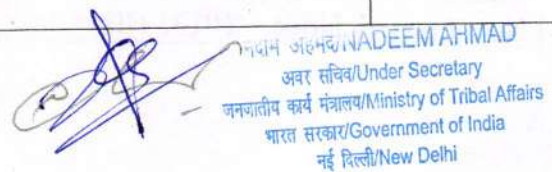 नदीम अहमद/NADEEM AHMAD
अवर सचिव/Under Secretary
जनजातीय कार्य मंत्रालय/Ministry of Tribal Affairs
भारत सरकार/Government of India
नई दिल्ली/New Delhi